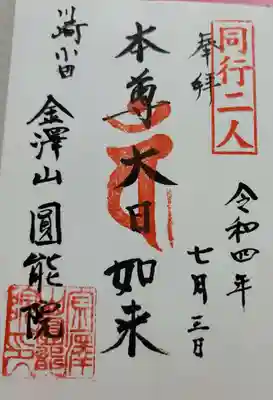 同行二人
奉拝
令和四年
七月三日
本尊大日如来
川崎小田
金澤山圓能院